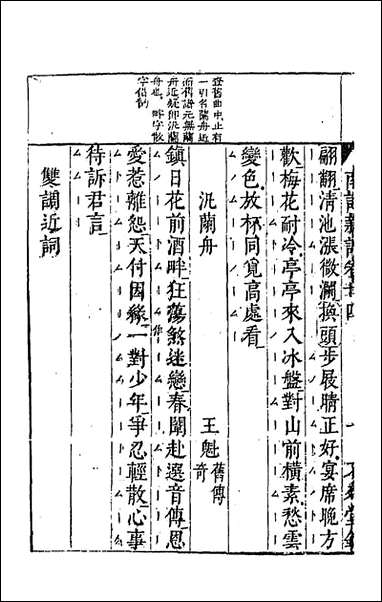 南詞新譜卷廿四
翩翩清池漲微瀾換頭步屐晴正好宴席晚方
歡梅花耐冷亭亭來入冰盤對山前橫素愁雲
變色故杯同覓高處看
查舊曲中止有
一引名蘭舟近
而舊譜元無蘭
舟近疑卽汎蘭
舟也 畔字散
字借韵
汎蘭舟
王魁舊傳奇
鎮日花前酒畔狂蕩煞迷戀春闈赴選音傳恩
愛惹離怨天付因緣一對少年爭忍輕散心事
待訴君言
雙調近詞